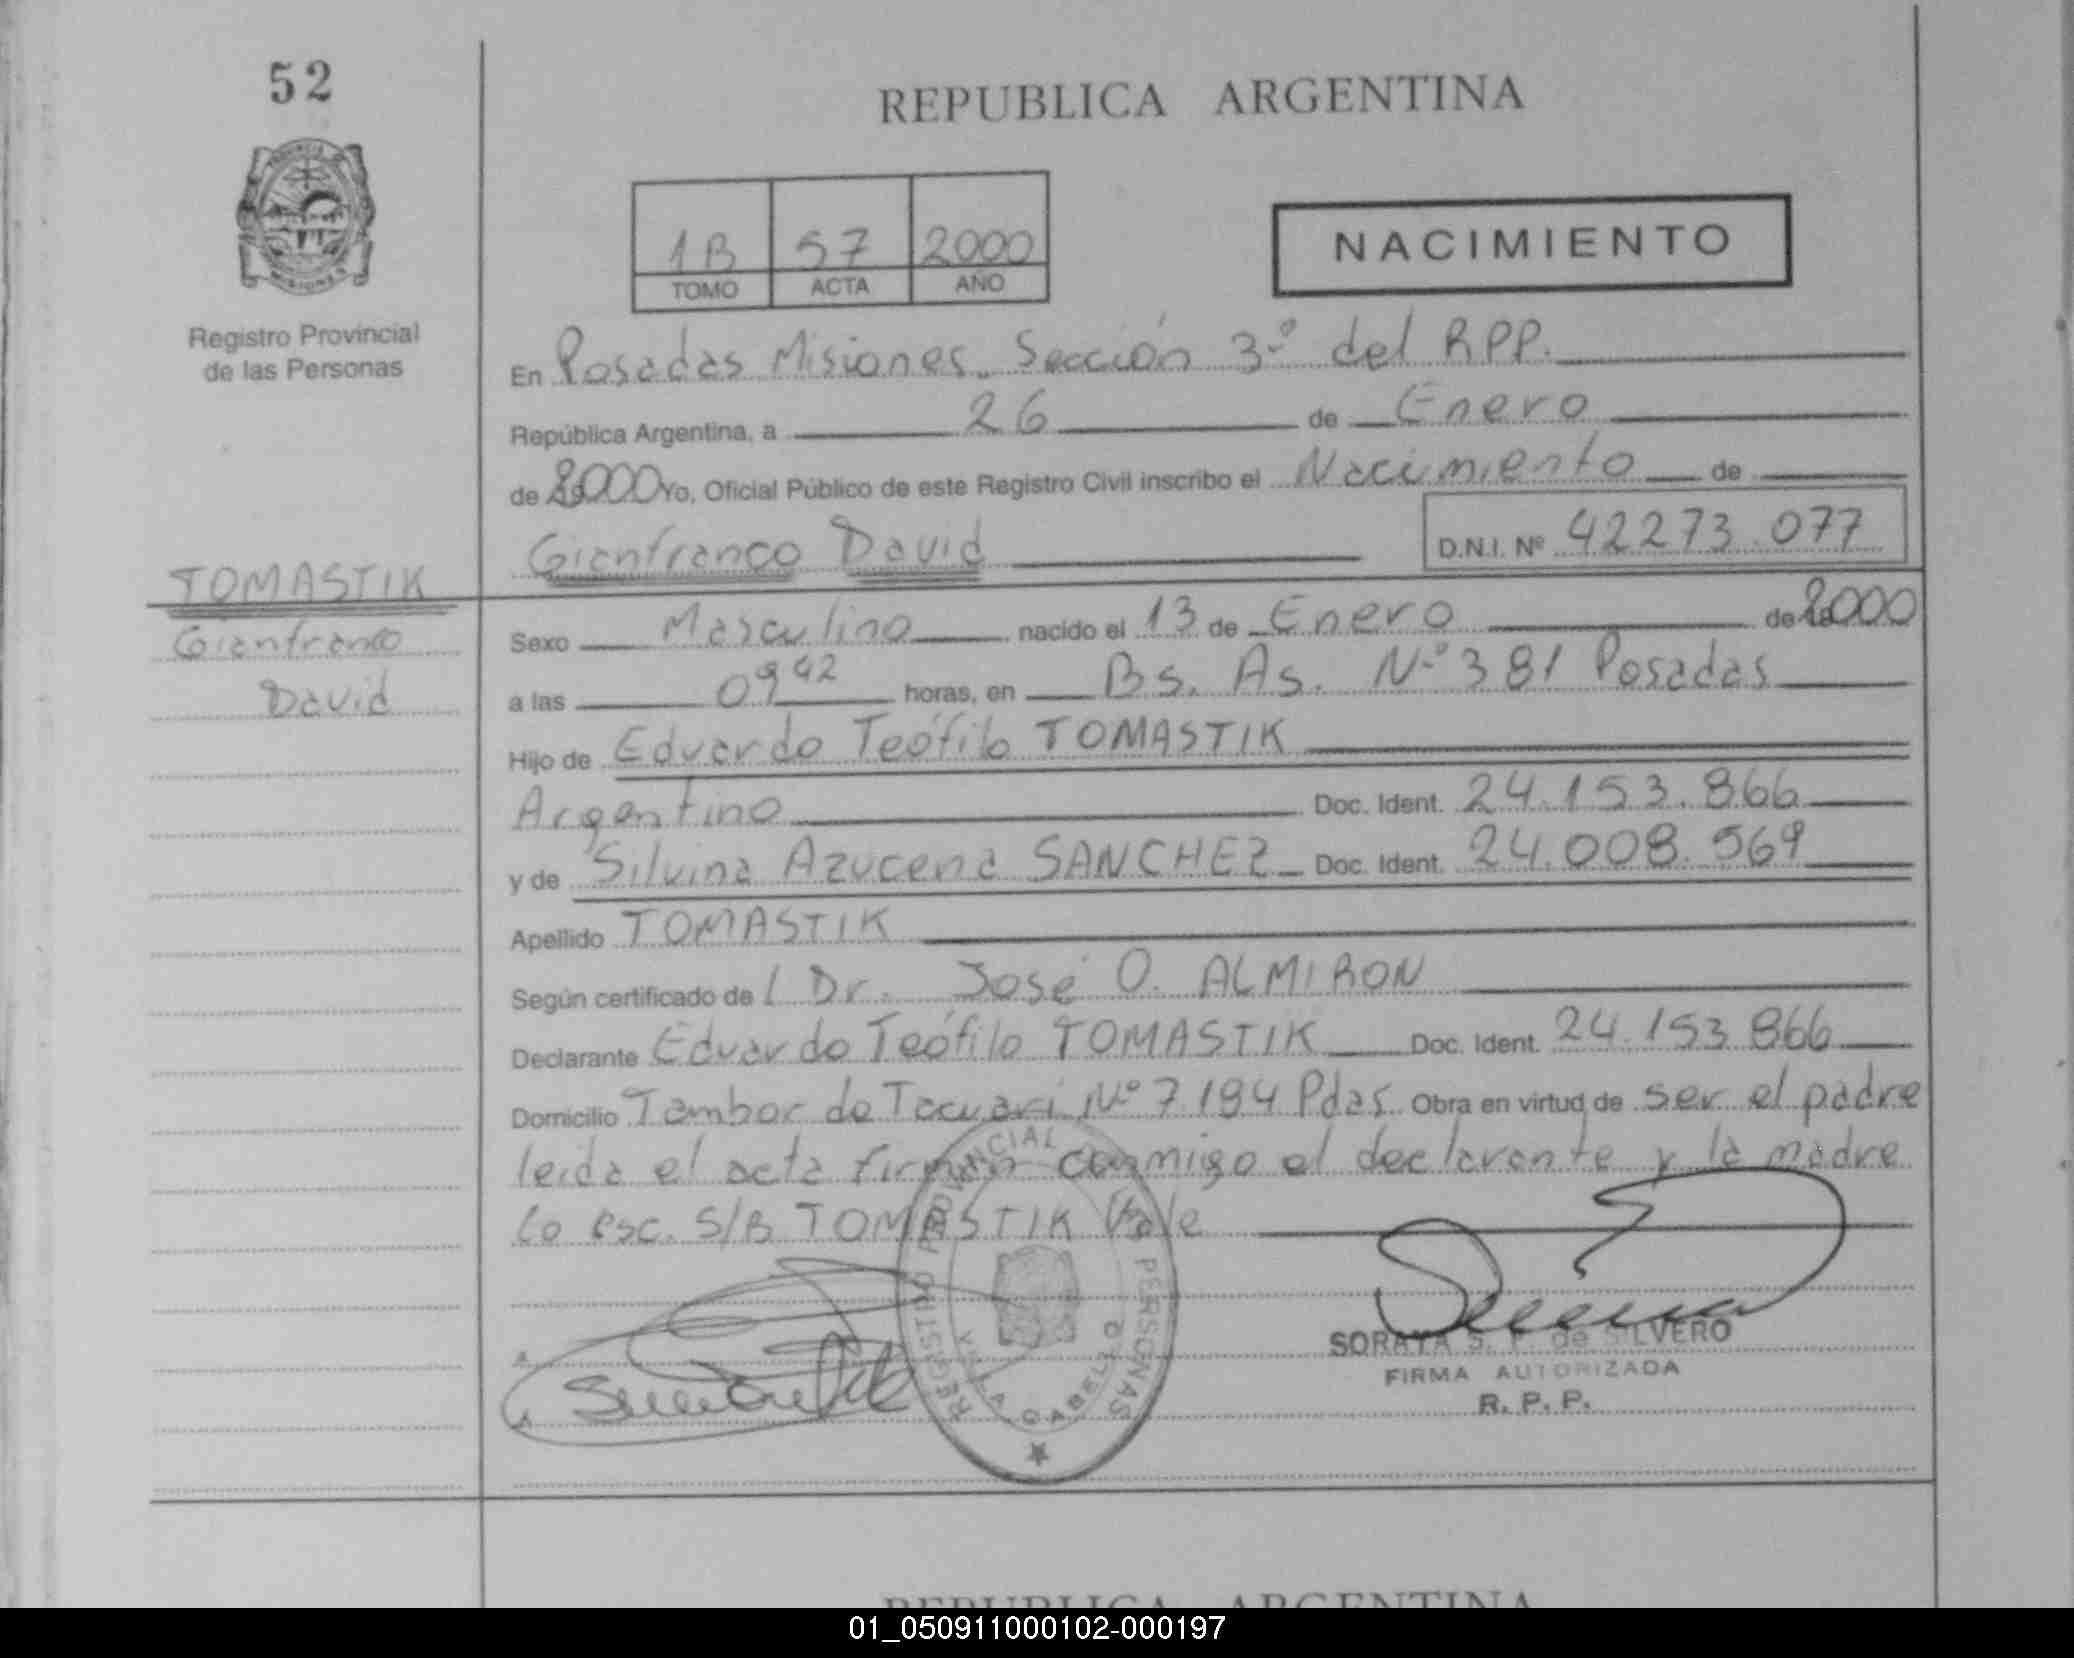 52
REPUBLICA ARGENTINA
1B 57 2000
TOMO ACTA AÑO
NACIMIENTO
Registro Provincial
de las Personas
En Posadas Misiones. Sección 3º del RPP.
República Argentina, a 26 de Enero
de 2000 Yo, Oficial Público de este Registro Civil inscribo el Nacimiento de
Gianfranco David D.N.I. Nº 42273.077
TOMASTIK
Gianfranco
David
Sexo Masculino nacido el 13 de Enero de 2000
a las 09 42 horas, en Bs. As. Nº 381 Posadas
Hijo de Eduardo Teófilo TOMASTIK
Argentino Doc. Ident. 24.153.866
y de Silvina Azucena SANCHEZ Doc. Ident. 24.008.569
Apellido TOMASTIK
Según certificado de l Dr. José O. ALMIRON
Declarante Eduardo Teófilo TOMASTIK Doc. Ident. 24.153.866
Domicilio Tambor de Tacuarí Nº 7194 Pdas. Obra en virtud de ser el padre
leída el acta firman conmigo el declarante y la madre
Lo esc. S/B TOMASTIK Vale
REGISTRO PROVINCIAL PERSONAS
VILLA CABELLO
SORAYA S. F. de SILVERO
FIRMA AUTORIZADA
R. P. P.
REPUBLICA ARGENTINA
01_050911000102-000197